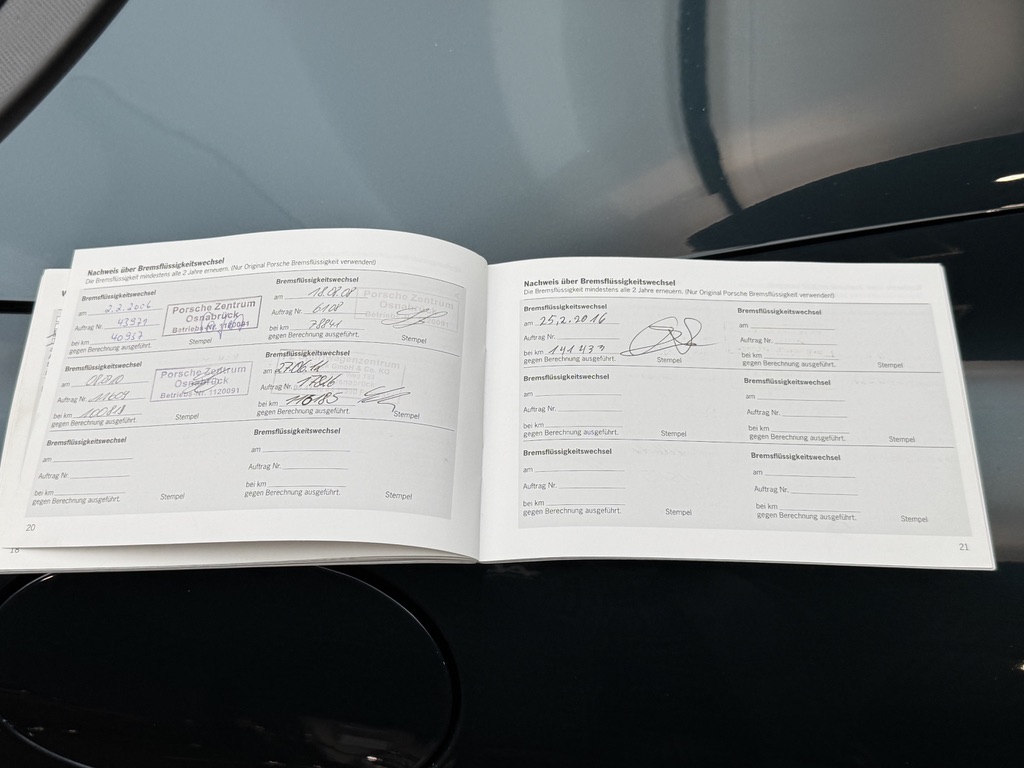 Nachweis über Bremsflüssigkeitswechsel
Die Bremsflüssigkeit mindestens alle 2 Jahre erneuern. (Nur Original Porsche Bremsflüssigkeit verwenden!)
Bremsflüssigkeitswechsel
am 2.2.2006
Auftrag Nr.
bei km 40937
gegen Berechnung ausgeführt.
Stempel
Porsche Zentrum
Osnabrück
Betriebs Nr. 1120091
Bremsflüssigkeitswechsel
am
Auftrag Nr. 6108
bei km 78841
gegen Berechnung ausgeführt.
Stempel
Porsche Zentrum
Osnabrück
Bremsflüssigkeitswechsel
am
Auftrag Nr.
bei km
gegen Berechnung ausgeführt.
Stempel
Porsche Zentrum
Osnabrück
Betriebs Nr. 1120091
Bremsflüssigkeitswechsel
am 27.06.11
Auftrag Nr.
bei km 116185
gegen Berechnung ausgeführt.
Stempel
Bremsflüssigkeitswechsel
am
Auftrag Nr.
bei km
gegen Berechnung ausgeführt.
Stempel
Bremsflüssigkeitswechsel
am
Auftrag Nr.
bei km
gegen Berechnung ausgeführt.
Stempel
20
18
Nachweis über Bremsflüssigkeitswechsel
Die Bremsflüssigkeit mindestens alle 2 Jahre erneuern. (Nur Original Porsche Bremsflüssigkeit verwenden!)
Bremsflüssigkeitswechsel
am 25.2.2016
Auftrag Nr.
bei km 141433
gegen Berechnung ausgeführt.
Stempel
Bremsflüssigkeitswechsel
am
Auftrag Nr.
bei km
gegen Berechnung ausgeführt.
Stempel
Bremsflüssigkeitswechsel
am
Auftrag Nr.
bei km
gegen Berechnung ausgeführt.
Stempel
Bremsflüssigkeitswechsel
am
Auftrag Nr.
bei km
gegen Berechnung ausgeführt.
Stempel
Bremsflüssigkeitswechsel
am
Auftrag Nr.
bei km
gegen Berechnung ausgeführt.
Stempel
Bremsflüssigkeitswechsel
am
Auftrag Nr.
bei km
gegen Berechnung ausgeführt.
Stempel
21